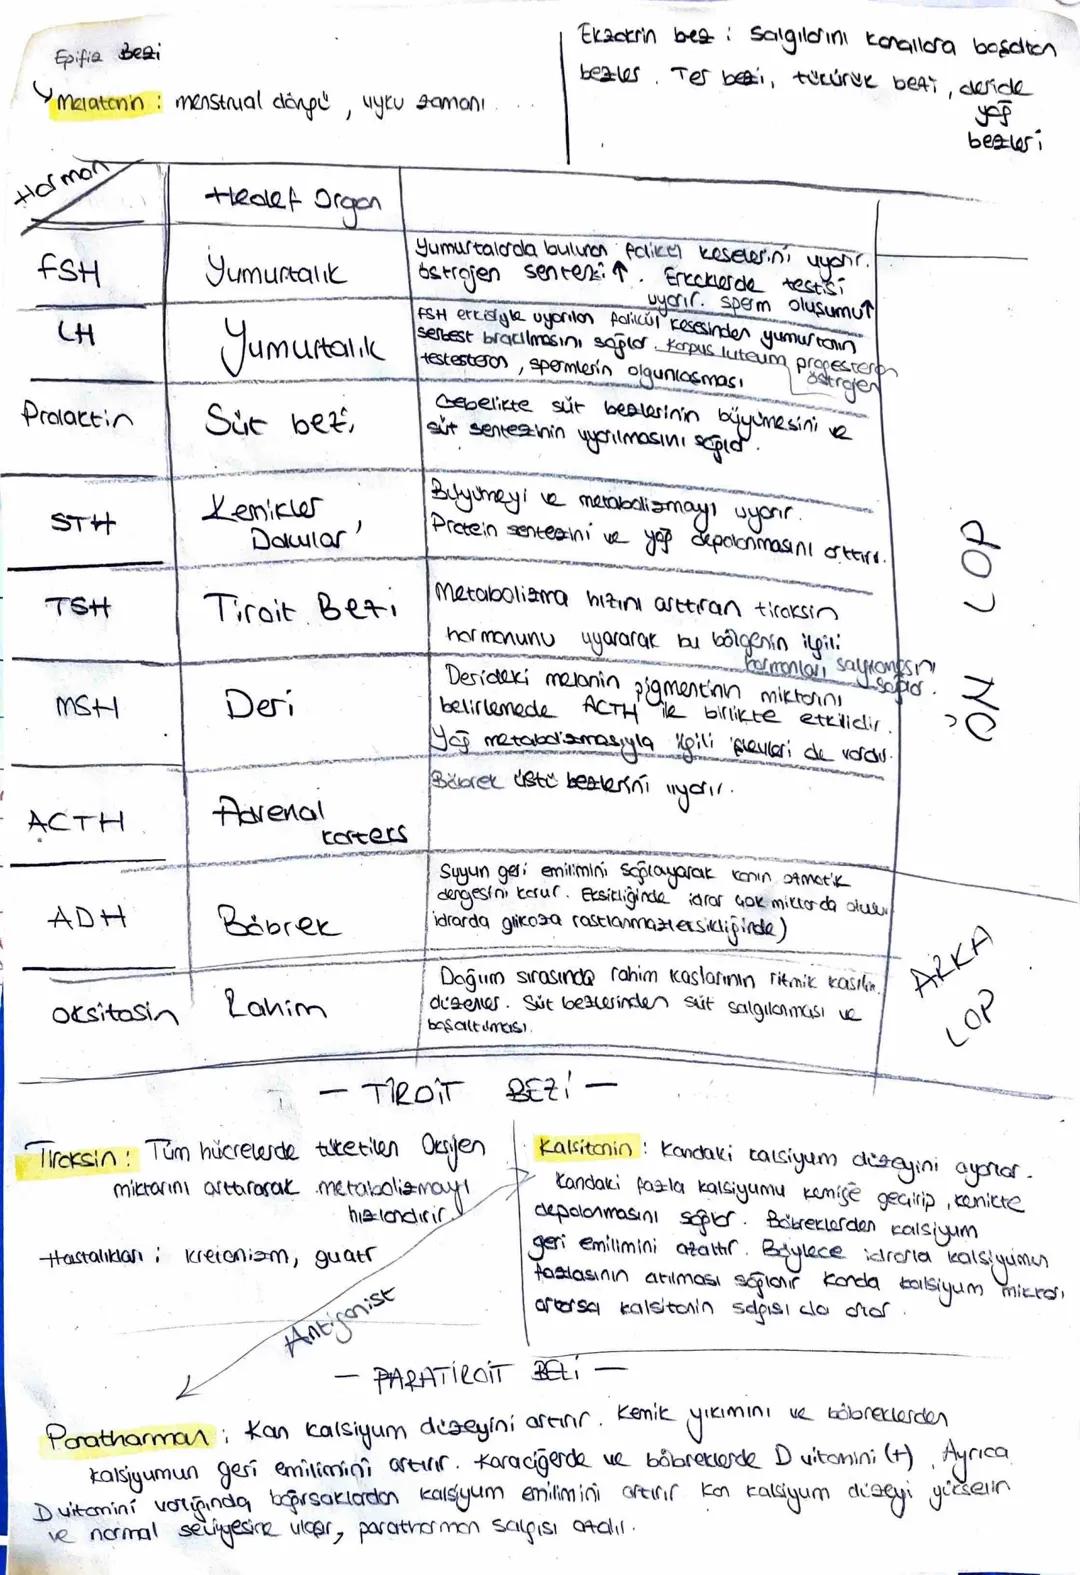 Epifiz Bezi
Melatonin : menstrual döngü , uyku zamanı
Ekzokrin bez : Salgılarını kanallara boşaltan
bezler . Ter bezi, tükürük bezi , deride
yağ
bezleri
Hormon
Hedef Organ
FSH
Yumurtalık
Yumurtalarda bulunan folikül keselerini uyarır.
östrojen sentezi ↑ . Erkeklerde testisi
uyarır. sperm oluşumu↑
LH
Yumurtalık
FSH etkisiyle uyarılan folikül kesesinden yumurtanın
serbest bırakılmasını sağlar. Korpus luteum progesteron
östrojen
testesteron , spermlerin olgunlaşması
Prolaktin
Süt bezi
Gebelikte süt bezlerinin büyümesini ve
süt sentezinin uyarılmasını sağlar.
STH
Kemikler ,
Dokular
Büyümeyi ve metabolizmayı uyarır.
Protein sentezini ve yağ depolanmasını arttırır.
TSH
Tiroit Bezi
Metabolizma hızını arttıran tiroksin
hormonunu uyararak bu bölgenin ilgili
hormonları salgılanmasını
sağlar.
MSH
Deri
Derideki melanin pigmentinin miktarını
belirlemede ACTH ile birlikte etkilidir.
Yağ metabolizmasıyla ilgili işlevleri de vardır.
ACTH
Adrenal
korteks
Böbrek üstü bezlerini uyarır.
ÖN LOP
ADH
Böbrek
Suyun geri emilimini sağlayarak kanın ozmotik
dengesini korur. Eksikliğinde idrar çok miktarda oluşur
idrarda glikoza rastlanmaz(eksikliğinde)
oksitosin
Rahim
Doğum sırasında rahim kaslarının ritmik kasılm.
düzenler. Süt bezlerinden süt salgılanması ve
boşaltılması.
ARKA
LOP
— TİROİT BEZİ —
Tiroksin : Tüm hücrelerde tüketilen Oksijen
miktarını arttırarak metabolizmayı
hızlandırır.
Hastalıkları ; kretenizm, guatr
Kalsitonin : Kandaki kalsiyum düzeyini ayarlar.
Kandaki fazla kalsiyumu kemiğe geçirip , kemikte
depolanmasını sağlar. Böbreklerden kalsiyum
geri emilimini azaltır. Böylece idrarla kalsiyumun
fazlasının atılması sağlanır Kanda kalsiyum miktarı
artarsa kalsitonin salgısı da artar.
Antigonist
— PARATİROİT BEZİ —
Parathormon ; Kan kalsiyum düzeyini artırır. Kemik yıkımını ve böbreklerden
kalsiyumun geri emilimini artırır. Karaciğerde ve böbreklerde D vitamini (+) . Ayrıca
D vitamini varlığında bağırsaklardan kalsiyum emilimini artırır Kan kalsiyum düzeyi yükselin
ve normal seviyesine ulaşır, parathormon salgısı azalır.